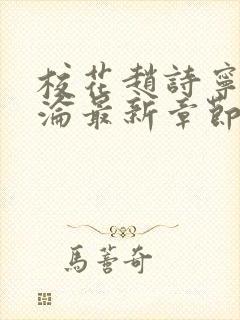 校花趙詩寧
淪最新章節
馬蕾奇